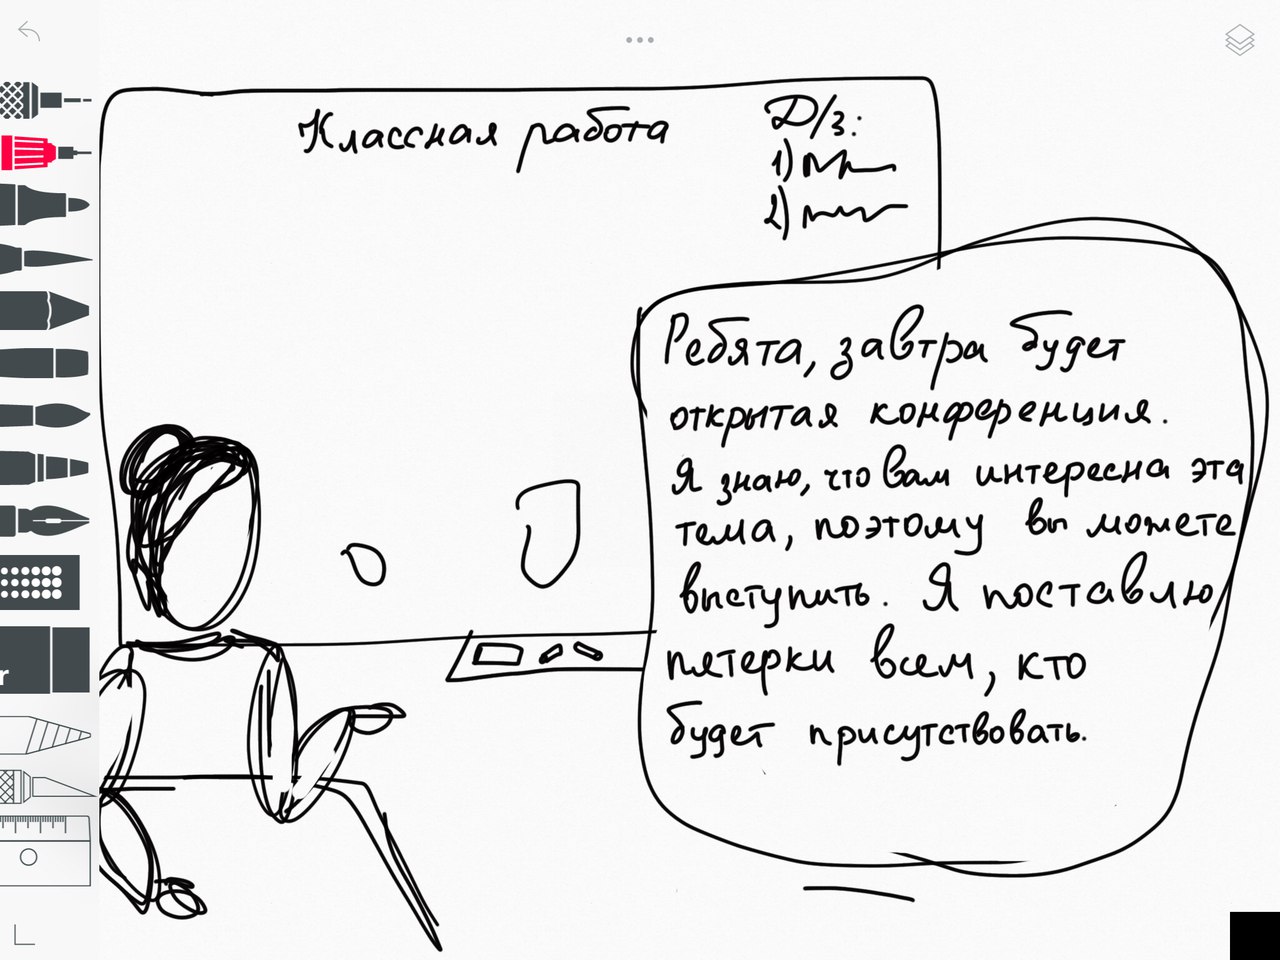 Классная работа
Д/з:
1)
2)
Ребята, завтра будет
открытая конференция.
Я знаю, что вам интересна эта
тема, поэтому вы можете
выступить. Я поставлю
пятерки всем, кто
будет присутствовать.
r